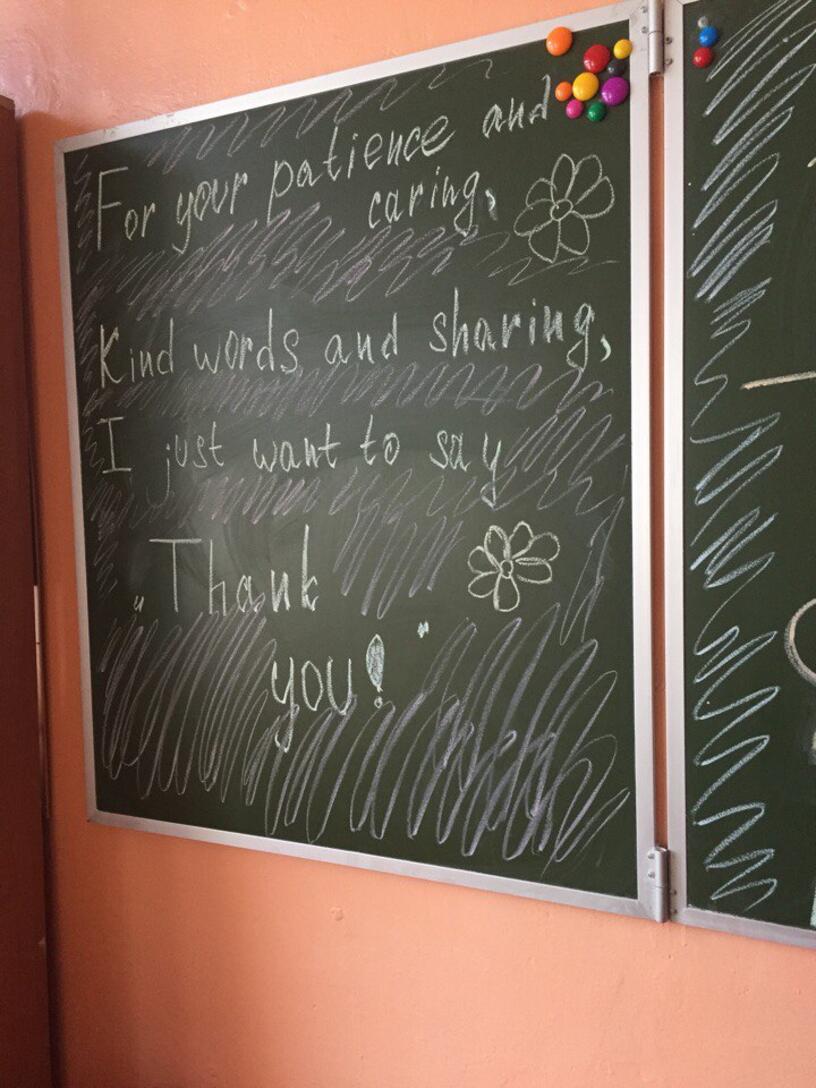 For your patience and
caring,
Kind words and sharing,
I just want to say
„Thank
you!"